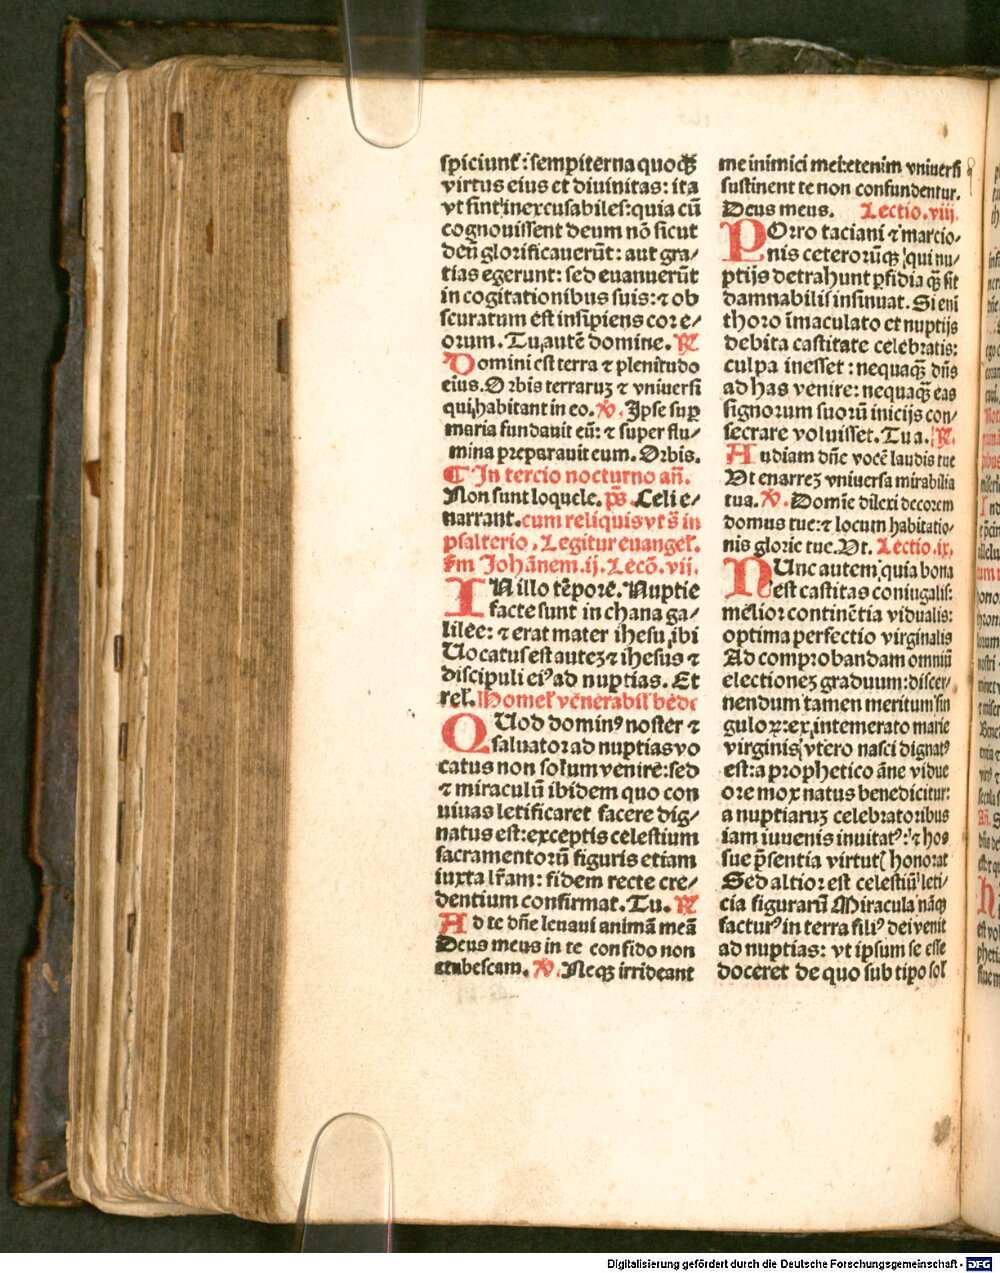 spiciunt᷒: sempiterna quoqꝫ
virtus eius et diuinitas: ita
vt sint inexcusabiles: quia cū
cognouissent deum nō sicut
deū glorificauerūt: aut gra⸗
tias egerunt: sed euanuerūt
in cogitationibus suis: ⁊ ob
scuratum est insipiens cor e⸗
orum. Tu autē domine. ℟
Domini est terra ⁊ plenitudo
eius. Orbis terraruꝫ ⁊ vniuersi
qui habitant in eo. ℣. Ipse suꝑ
maria fundauit eū: ⁊ super flu⸗
mina preparauit eum. Orbis.
¶ In tercio nocturno an̄.
Non sunt loquele. ps̄. Celi e⸗
narrant. cum reliquis vt s̄ in
psalterio. Legitur euangeł.
s̄m Johānem. ij. Lecō. vij.
IN illo tēpore. Nuptie
facte sunt in chana ga⸗
lilee: ⁊ erat mater ihesu ibi
Uocatus est auteꝫ ⁊ ihesus ⁊
discipuli eiꝰ ad nuptias. Et
reł. Homeł venerabił bede
QUod dominꝰ noster ⁊
saluator ad nuptias vo
catus non solum venire: sed
⁊ miraculū ibidem quo con
uiuas letificaret facere dig⸗
natus est: exceptis celestium
sacramentorū figuris etiam
iuxta lr̄am: fidem recte cre⸗
dentium confirmat. Tu. ℟
Ad te dn̄e leuaui animā meā
Deus meus in te confido non
erubescam. ℣. Neqꝫ irrideant
me inimici mei: etenim vniuersi
sustinent te non confundentur.
Deus meus. Lectio. viij.
POrro taciani ⁊ marcio⸗
nis ceterorūqꝫ qui nu⸗
ptijs detrahunt ꝑfidia qꝫ̄ sit
damnabilis insinuat. Si enī
thoro īmaculato et nuptijs
debita castitate celebratis:
culpa inesset: nequaqꝫ̄ dn̄s
ad has venire: nequaqꝫ̄ eas
signorum suorū inicijs con⸗
secrare voluisset. Tu a. ℟.
Audiam dn̄e vocē laudis tue
Ut enarreꝫ vniuersa mirabilia
tua. ℣. Domīe dilexi decorem
domus tue: ⁊ locum habitatio⸗
nis glorie tue. Ut. Lectio. ix.
NUnc autem quia bona
est castitas coniugalis:
melior continētia vidualis:
optima perfectio virginalis
Ad comprobandam omniū
electioneꝫ graduum: discer⸗
nendum tamen meritum sin
guloꝝ: ex intemerato marie
virginis vtero nasci dignatꝰ
est: a prophetico āne vidue
ore mox natus benedicitur:
a nuptiaruꝫ celebratoribus
iam iuuenis inuitatꝰ: ⁊ hos
sue p̄sentia virtutꝭ honorat
Sed altior est celestiū leti⸗
cia figurarū Miracula nāqꝫ
facturꝰ in terra filiꝰ dei venit
ad nuptias: vt ipsum se esse
doceret de quo sub tipo sol
Digitalisierung gefördert durch die Deutsche Forschungsgemeinschaft - DFG